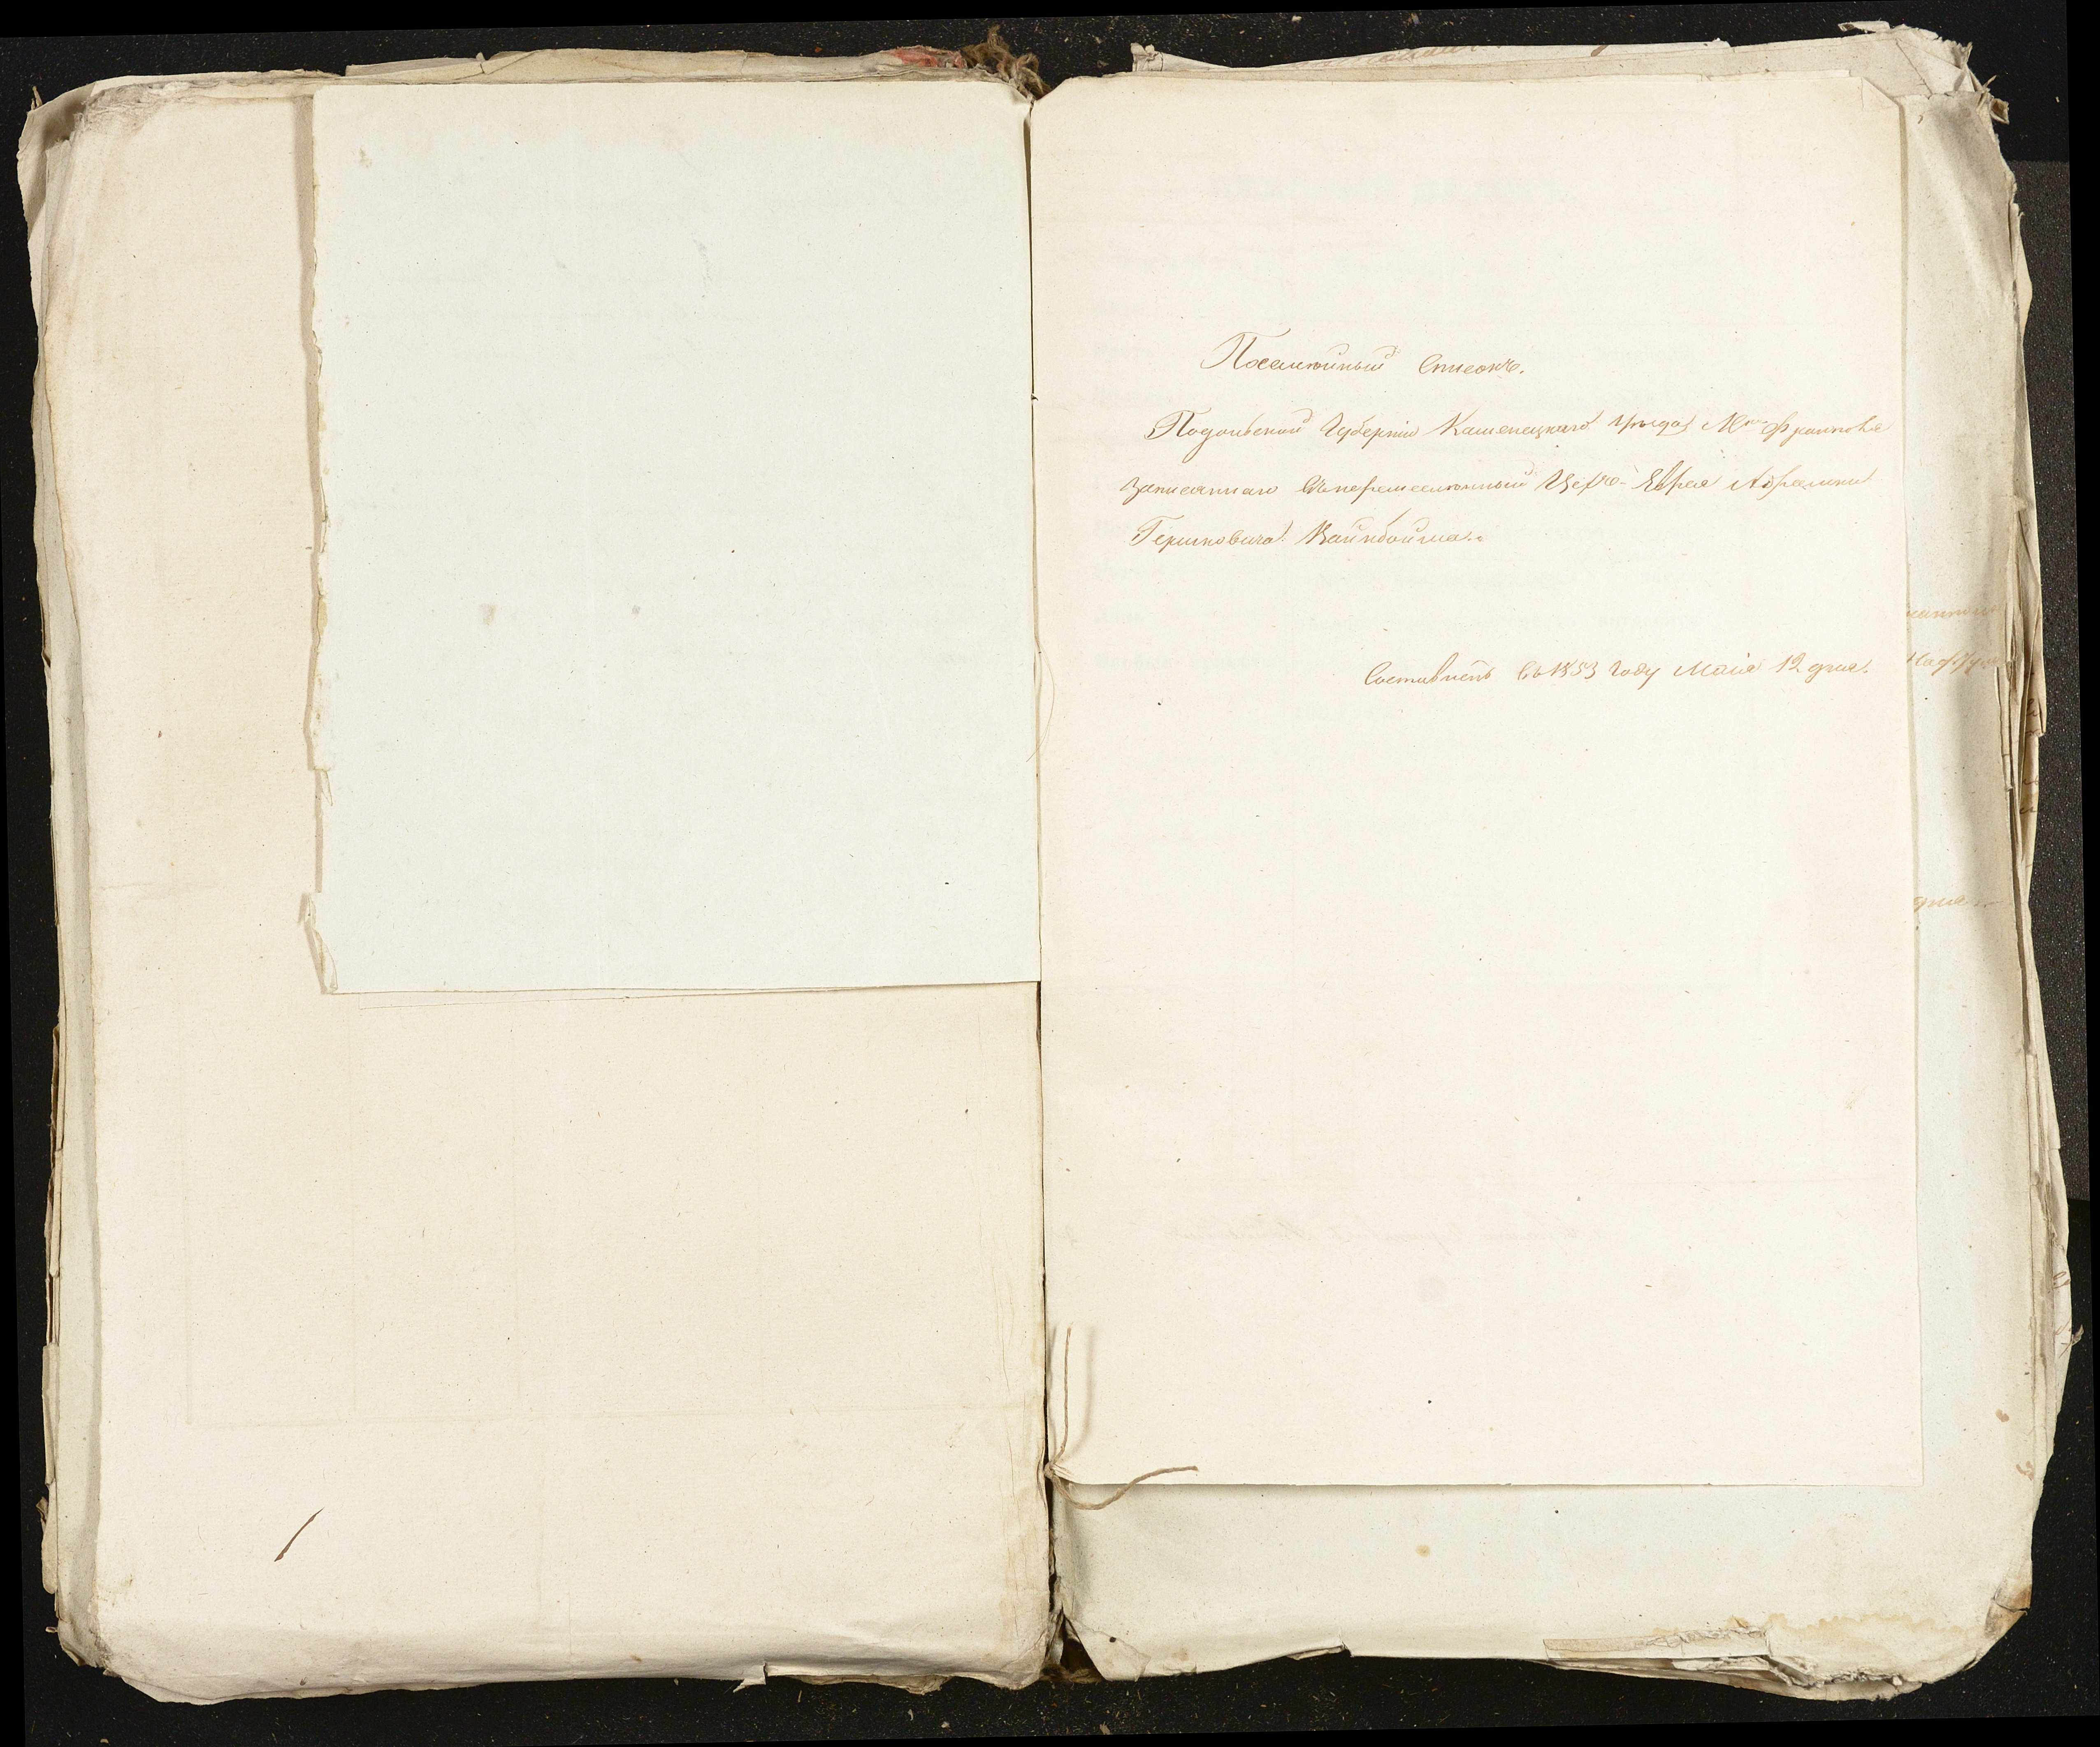 Посемейный Списокъ.
Подольской Губерніи Каменецкаго Уѣзда М<sup>ка</sup> Фрамполя
Записаннаго въ неремесленный Цехъ Еврея Абрамка
Гершковича Вайнбойма.
Составленъ въ 1853 году Маія 12 дня.
дня